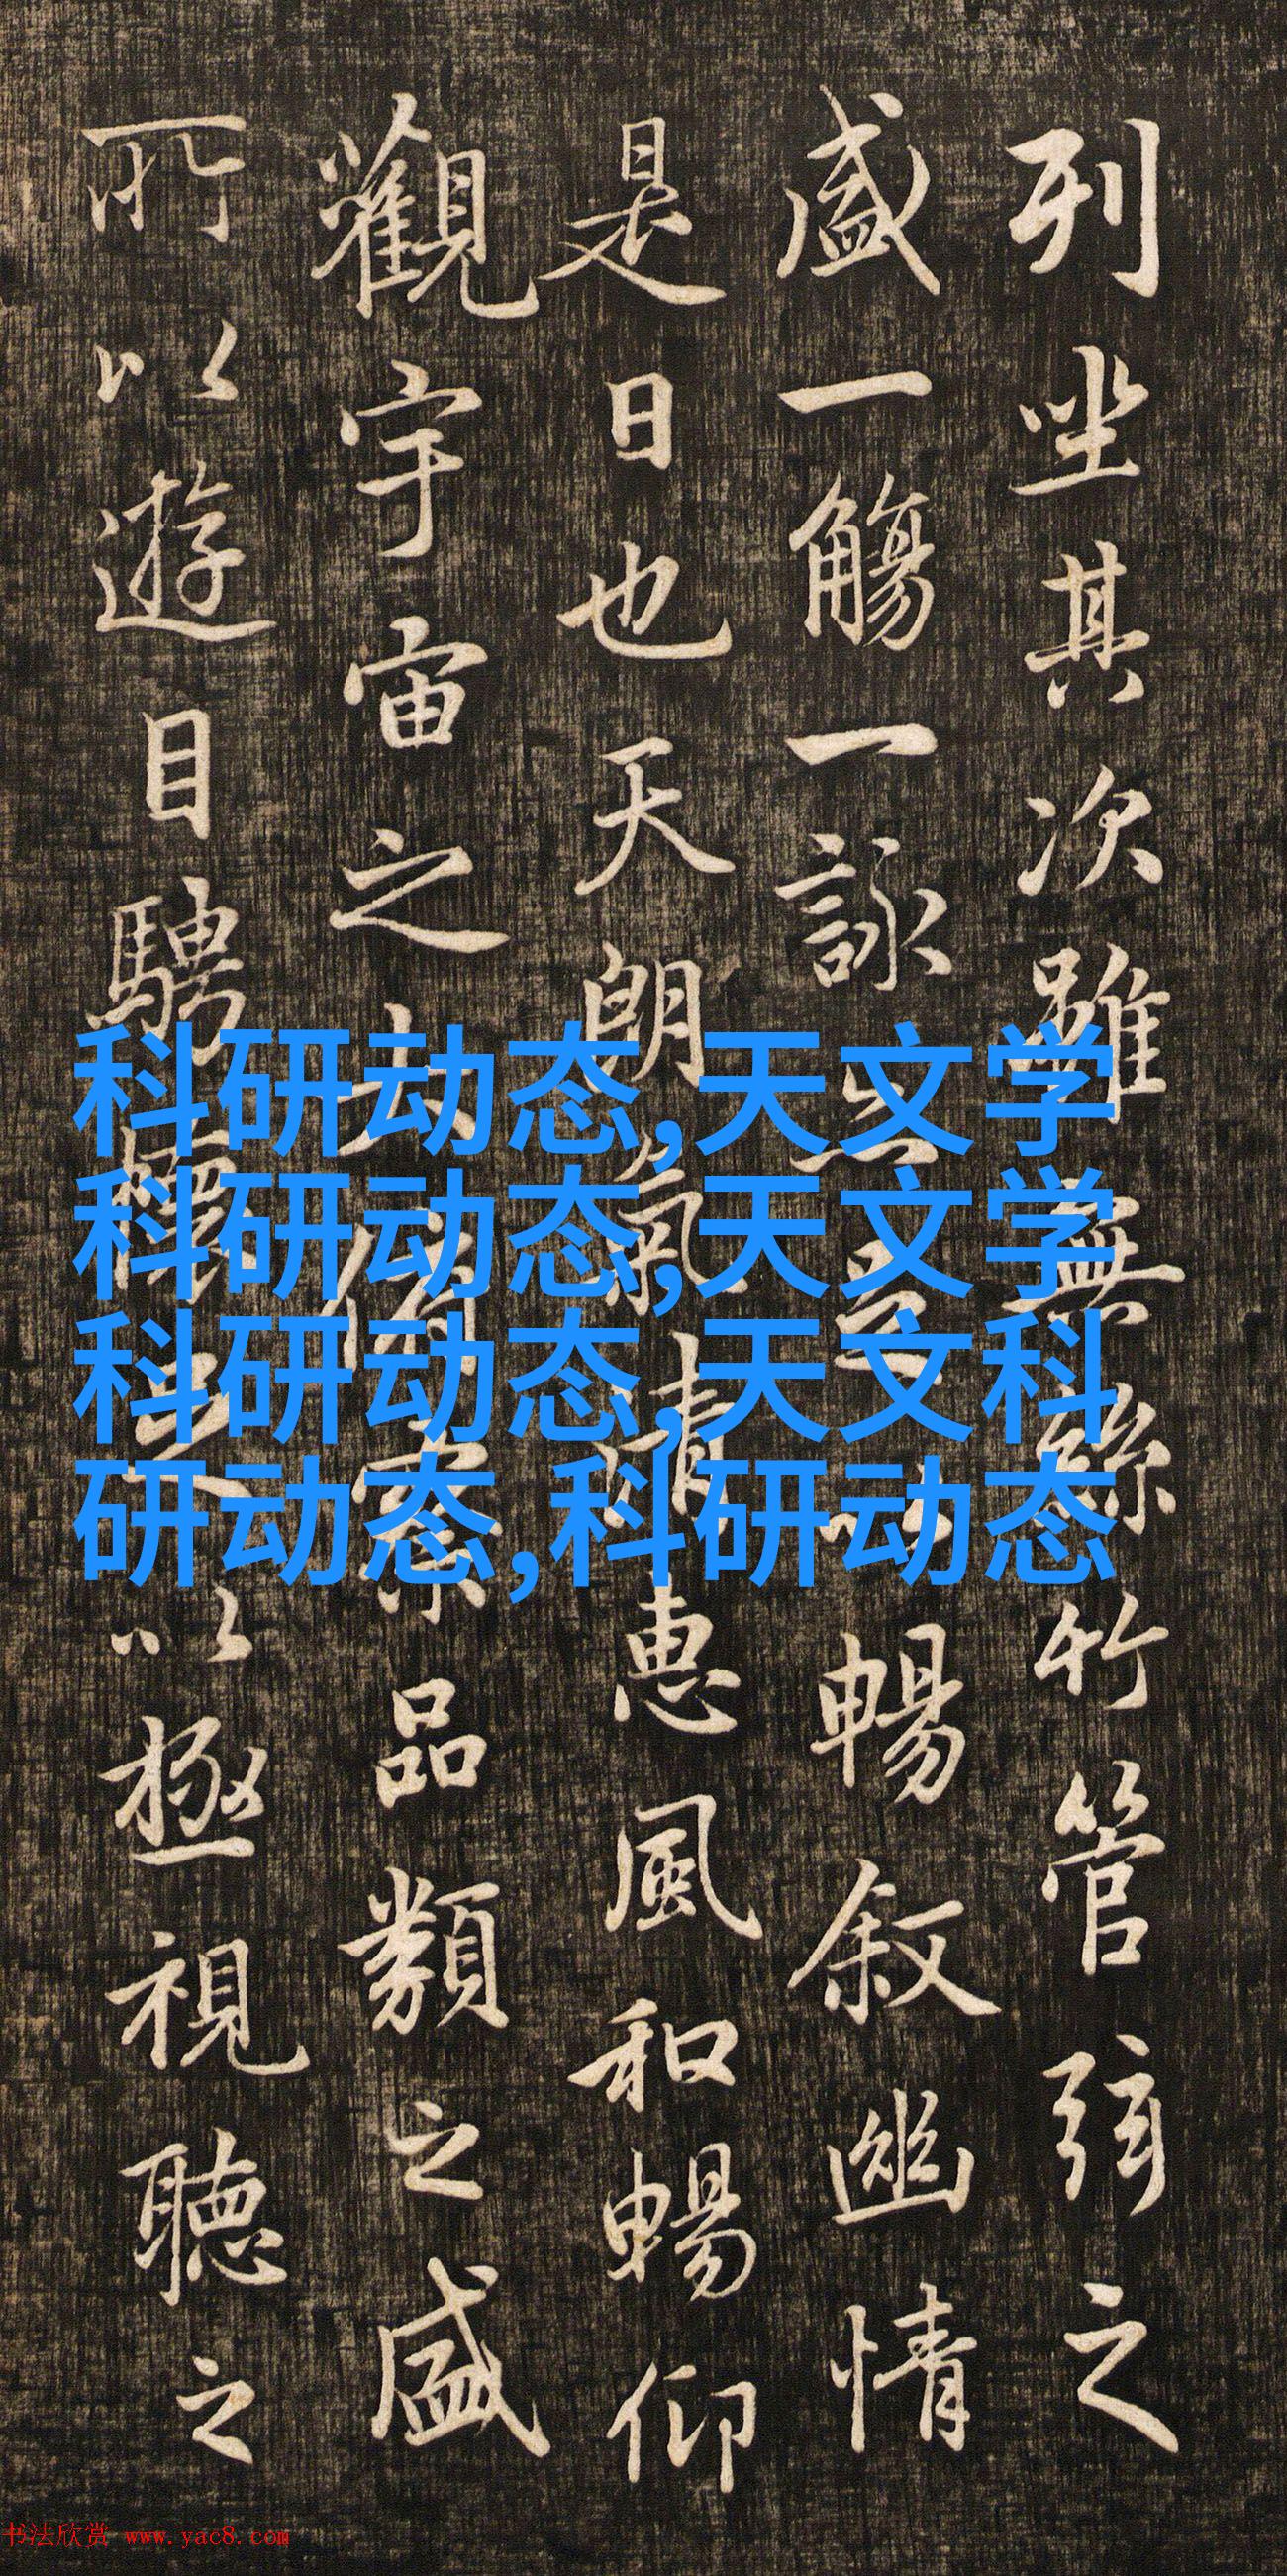 列坐其次雖無絲竹管弦之
盛一觴一詠亦足以暢叙幽情
是日也天朗氣清惠風和暢仰
觀宇宙之大俯察品類之盛
所以遊目騁懷足以極視聽之
科研动态,天文学
科研动态,天文学
科研动态,天文科
研动态,科研动态
书法欣赏 www.yac8.com